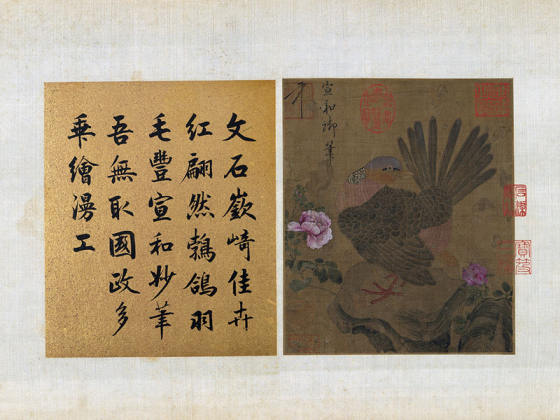 宣和御筆
文石嶔崎佳卉
紅翩然鵓鴿羽
毛豐宣和妙筆
吾無取國政多
乖繪漫工